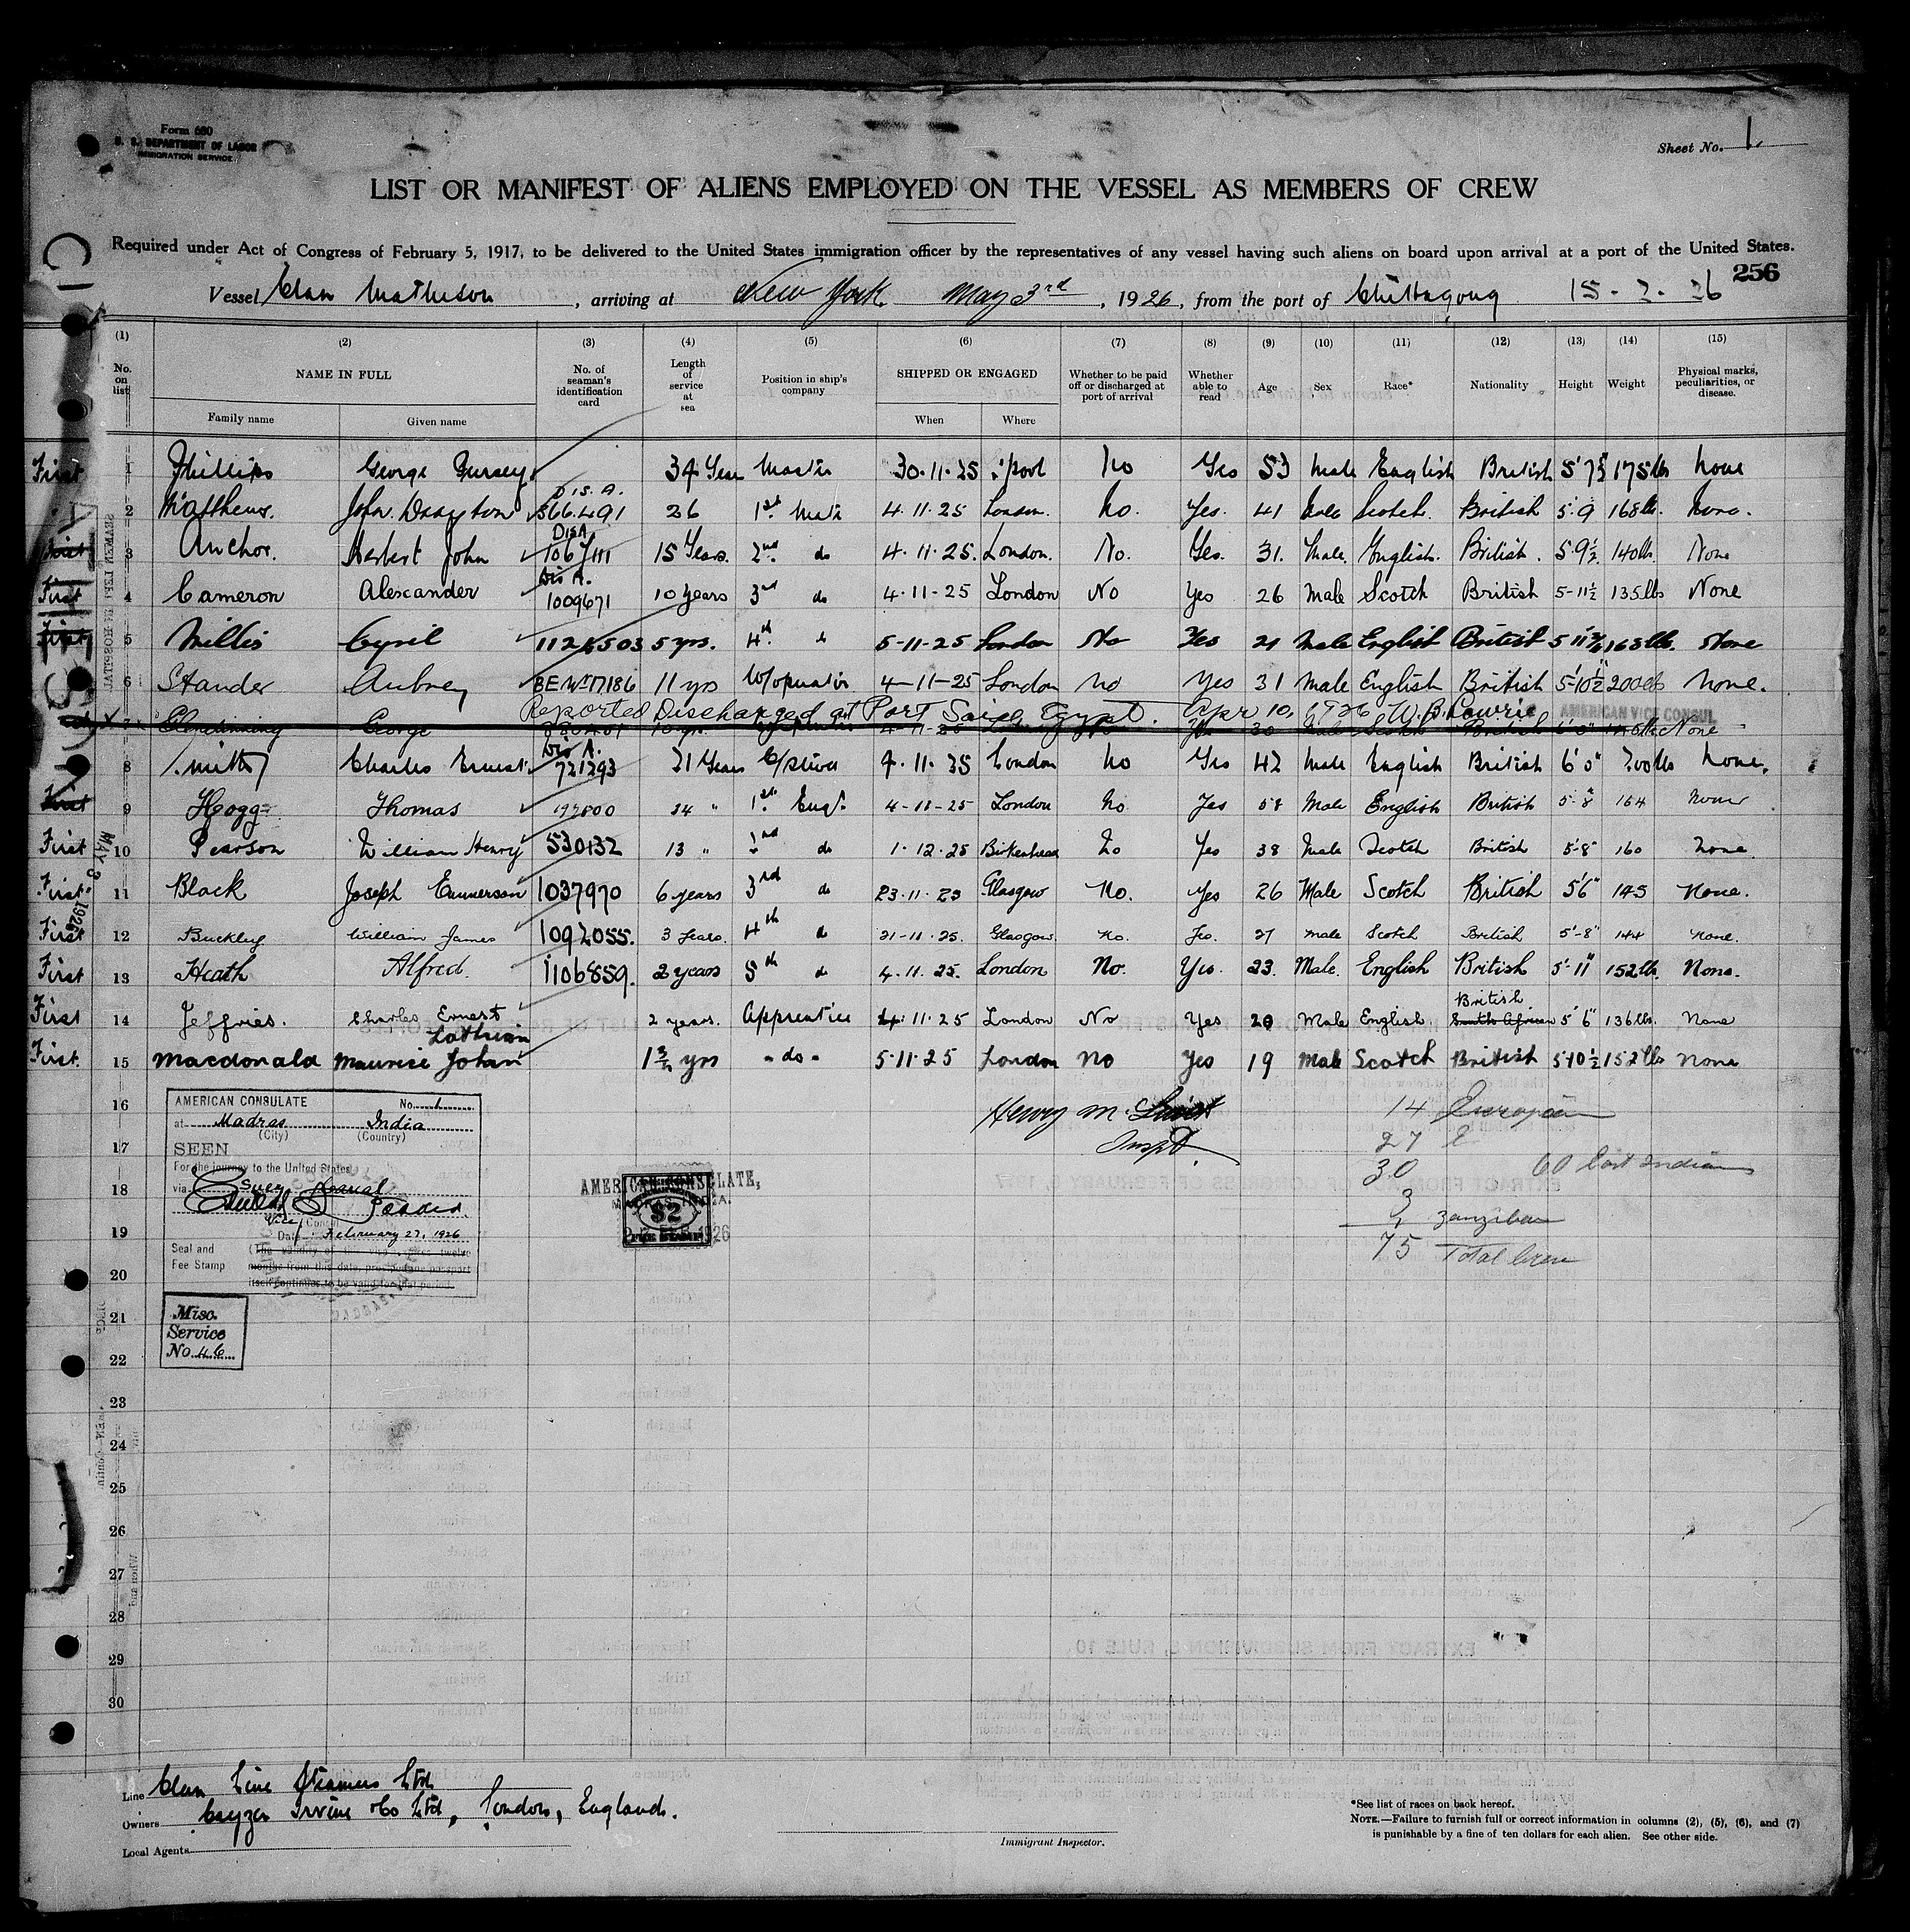 Form 680
U. S. DEPARTMENT OF LABOR
IMMIGRATION SERVICE
Sheet No. 1.
LIST OR MANIFEST OF ALIENS EMPLOYED ON THE VESSEL AS MEMBERS OF CREW
Required under Act of Congress of February 5, 1917, to be delivered to the United States immigration officer by the representatives of any vessel having such aliens on board upon arrival at a port of the United States.
256
Vessel Clan Matheson, arriving at New York May 3rd, 1926, from the port of Chittagong 15-2-26
(1) (2) (3) (4) (5) (6) (7) (8) (9) (10) (11) (12) (13) (14) (15)
No. on list NAME IN FULL Family name Given name No. of seaman's identification card Length of service at sea Position in ship's company SHIPPED OR ENGAGED When Where Whether to be paid off or discharged at port of arrival Whether able to read Age Sex Race* Nationality Height Weight Physical marks, peculiarities, or disease.
First 1 Phillips George 34 Year Master 30.11.25 L'pool No Yes 53 Male English British 5'7½ 175lb None
2 Matthews. John Drayton Dis. A. 366491 26 1st Mate 4.11.25 London. No. Yes. 41 Male Scotch. British 5'9 168lb. None.
First 3 Anchor. Herbert John Dis A 15 Years. 2nd do 4.11.25. London. No. Yes. 31. Male. English. British. 5.9½. 140lb. None
First 4 Cameron Alexander Dis A. 1009671 10 years 3rd do 4.11-25 London No Yes 26 Male Scotch British 5-11½ 135lbs None
First 5 Willis Cyril 5 yrs. 4th " 5-11-25 London No Yes 21 Male English British 163 lbs. None
6 Stander Aubrey 11 yrs W/operator 4-11-25 London No Yes 31 Male English British 5'10½ 200lbs None.
Reported Discharged at Port Said, Egypt. Apr 10, 1926 W. B. Lawrie AMERICAN VICE CONSUL
7 Glendinning George 4-11-25 30 Male Scotch British 6'0" None
8 Smith Charles Ernest Dis A. 721293 21 Years 4.11.25 London No Yes 42 Male English British 6'0" 200lbs None.
First 9 Hogg Thomas 197800 34 " 1st Eng. 4-11-25 London No Yes 58 Male English British 5'8" 164 None
First 10 Pearson William Henry 530132 13 " 2nd do 1.12.25 Birkenhead No Yes 38 Male Scotch British 5'8" 160 None
First 11 Black Joseph Emmerson 1037970 6 years 3rd do 23.11.25 Glasgow No. Yes 26 Male Scotch British 5'6" 145 None.
First 12 Buckley William James 1092055. 3 Years. 4th do 21-11.25. Glasgow. No. Yes. 27 Male Scotch British 5'-8" 144 None.
First 13 Heath Alfred. 1106859. 2 years 5th do 4.11.25. London No. Yes. 23. Male. English British 5'-11" 152lb. None.
First 14 Jeffries. Charles Ernest 2 years. Apprentice 4.11.25 London No Yes 20 Male English British South African 5'6" 136lbs. None
First. 15 Macdonald Maurice John Lothian yrs - do - 5.11.25 London No Yes 19 Male Scotch British 5'10½ 152lbs None
16
17
18
19
20
21
22
23
24
25
26
27
28
29
30
Henry M.
Inspt.
14 European
27
30
60 East Indian
3 Zanzibar
75 Total Crew
MAY 3 1926
AMERICAN CONSULATE No. 1
at Madras India
(City) (Country)
SEEN
For the journey to the United States
via Suez Canal
Vice Consul
Date February 27, 1926
Seal and Fee Stamp
(The validity of this visa expires twelve
months from this date, provided the passport
itself continues to be valid for that period.
AMERICAN CONSULATE,
MADRAS, INDIA.
$2
FEE STAMP
Misc.
Service
No. 46
Line Clan Line Steamers Ltd
Owners Cayzer Irvine & Co Ltd, London, England.
Local Agents
Immigrant Inspector.
*See list of races on back hereof.
NOTE.—Failure to furnish full or correct information in columns (2), (5), (6), and (7)
is punishable by a fine of ten dollars for each alien. See other side.